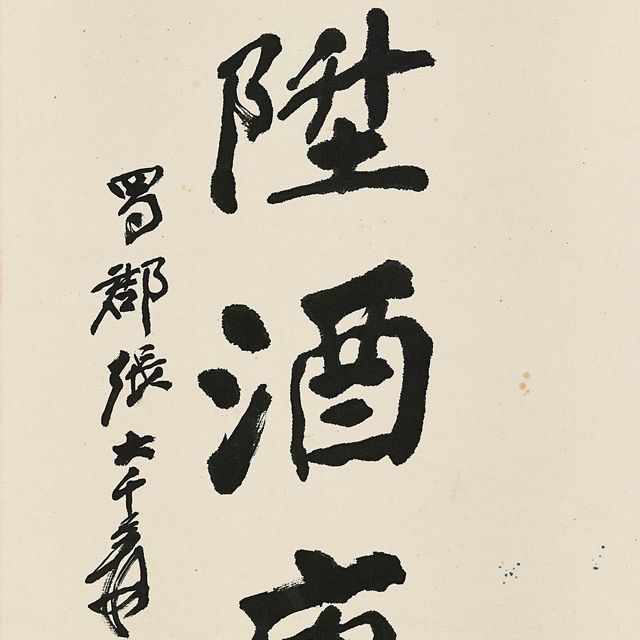 陞酒
蜀郡張大千爰